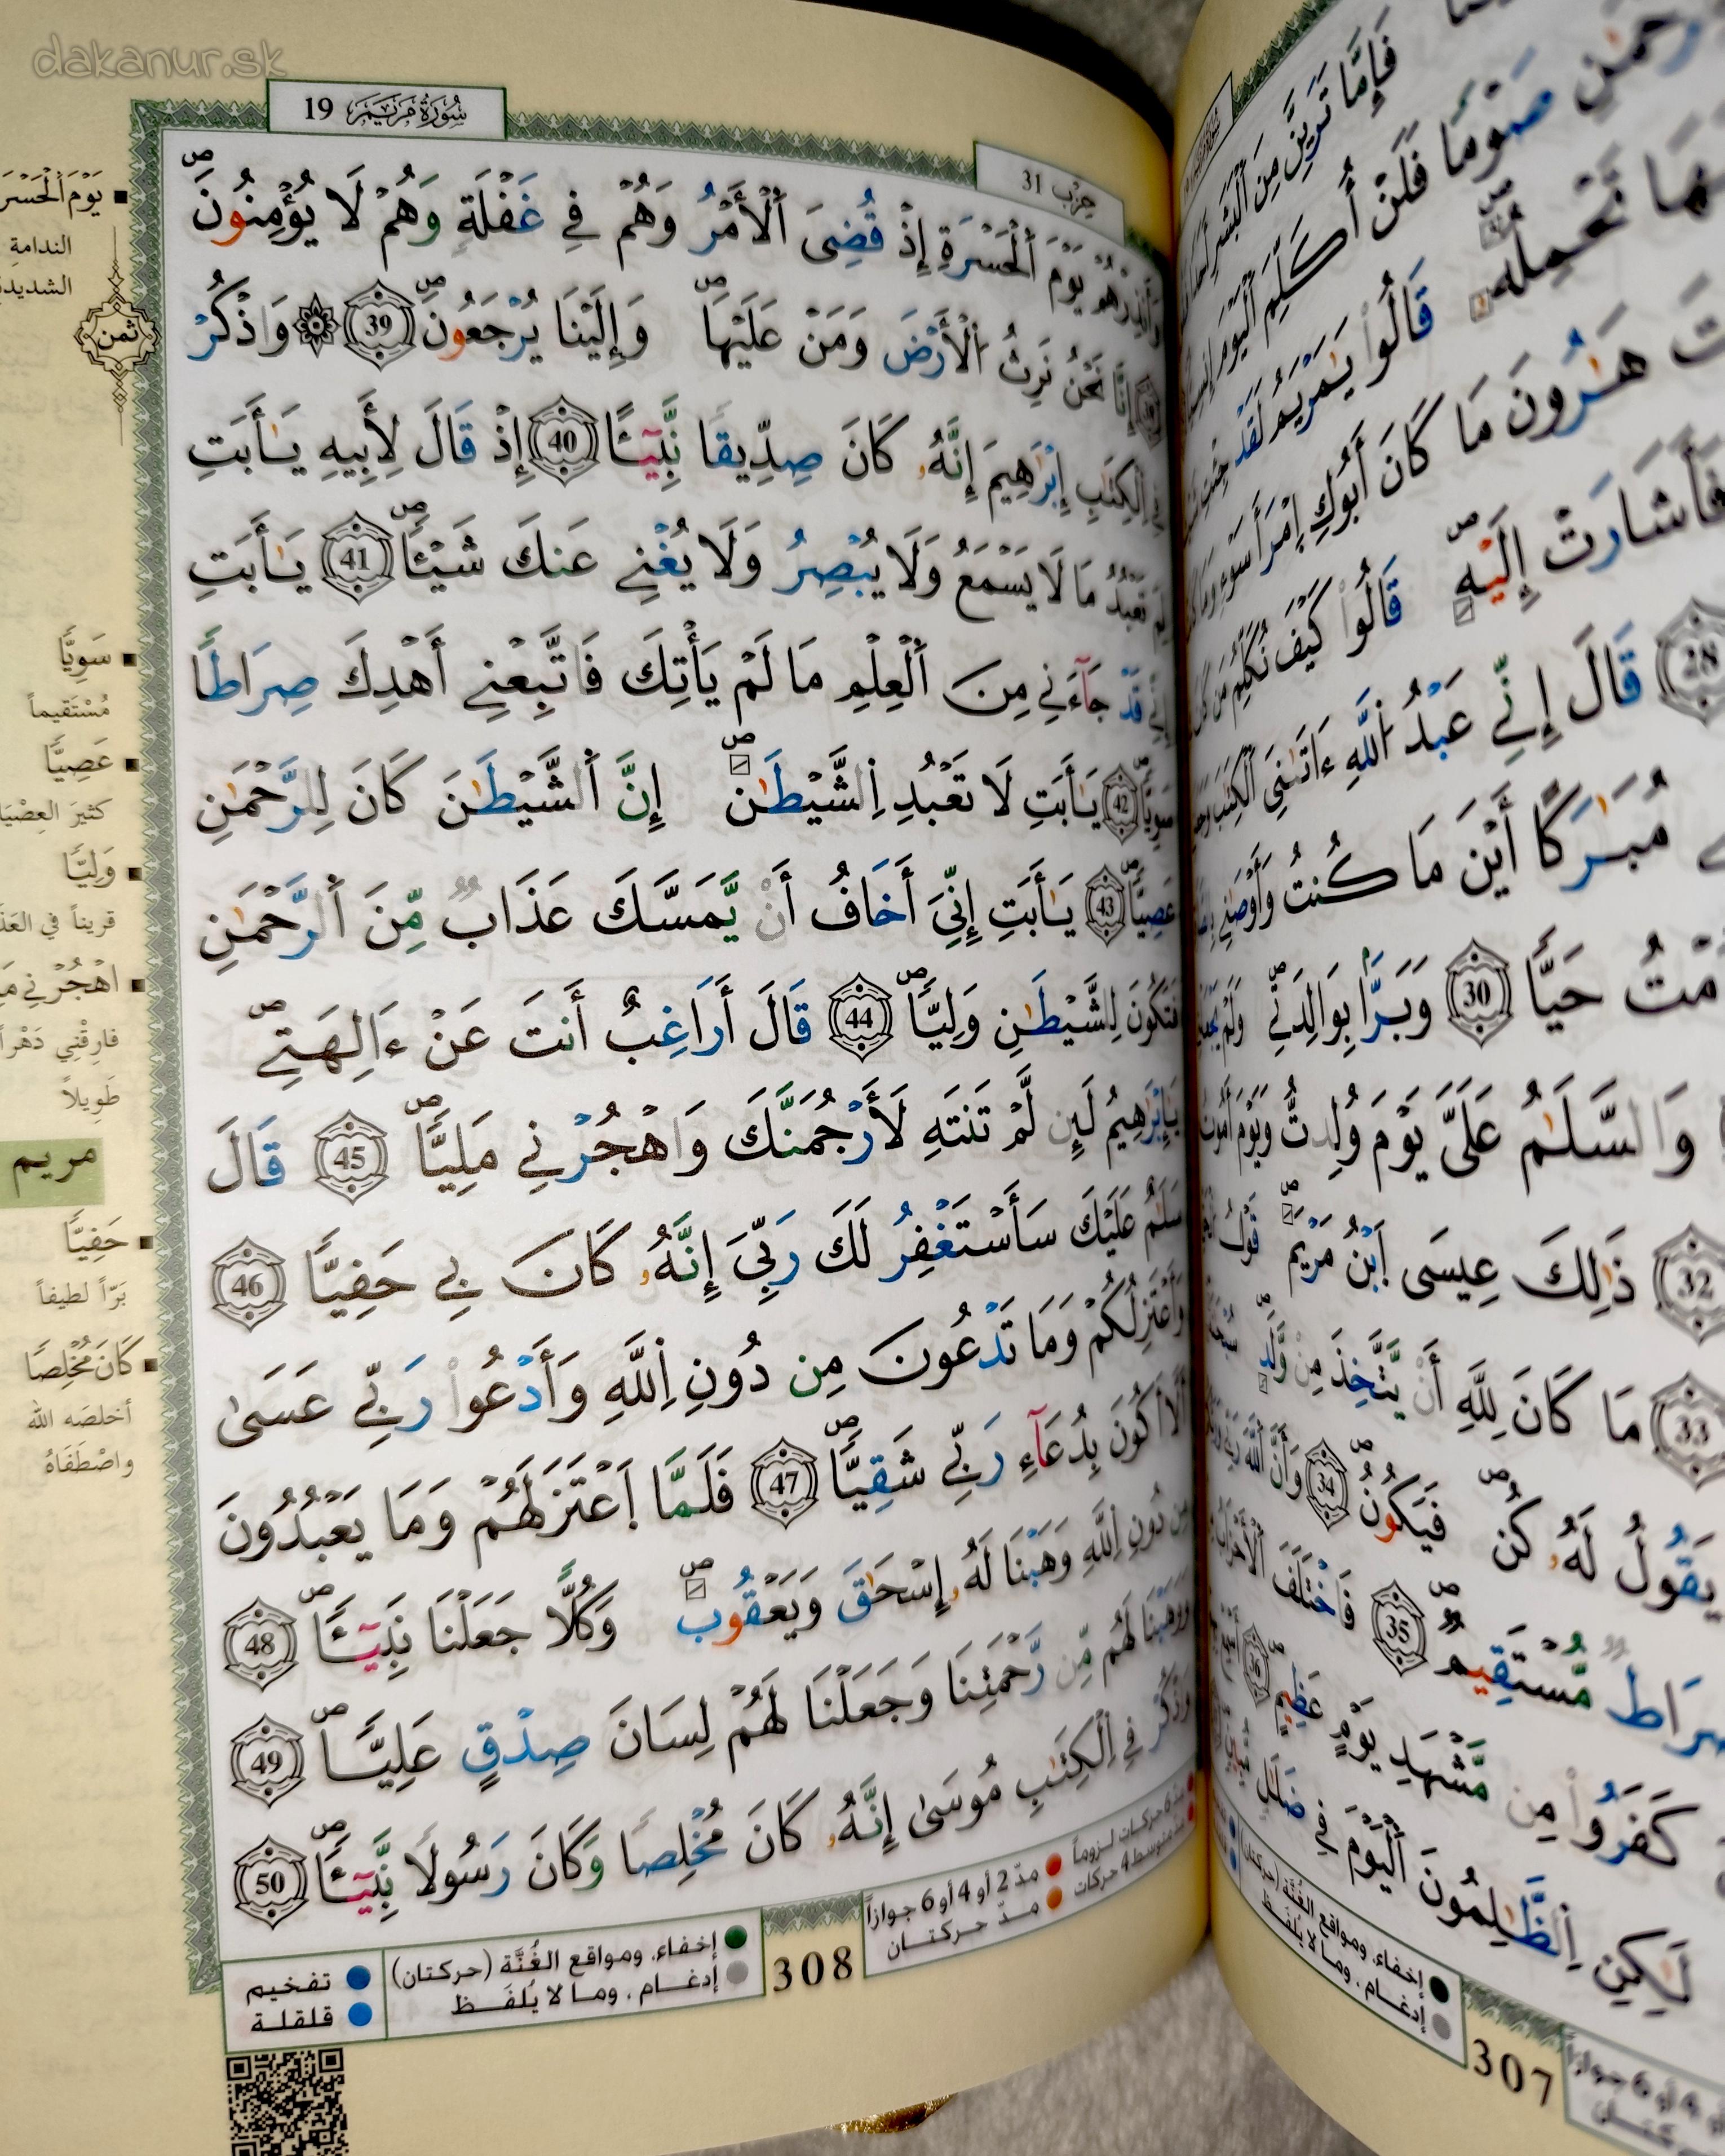 dakanur.sk
سُورَةُ مَرْيَمَ 19
حِزْب 31
وَأَنذِرْهُمْ يَوْمَ اَ۬لْحَسْرَةِ إِذْ قُضِيَ اَ۬لْأَمْرُ وَهُمْ فِے غَفْلَةٖ وَهُمْ لَا يُؤْمِنُونَۖ
إِنَّا نَحْنُ نَرِثُ اُ۬لْأَرْضَ وَمَنْ عَلَيْهَاۖ وَإِلَيْنَا يُرْجَعُونَۖ 39 ۞ وَاذْكُرْ
فِے اِ۬لْكِتَٰبِ إِبْرَٰهِيمَ إِنَّهُۥ كَانَ صِدِّيقاٗ نَّبِيٓـٔاً 40 إِذْ قَالَ لِأَبِيهِ يَٰٓأَبَتِ
لِمَ تَعْبُدُ مَا لَا يَسْمَعُ وَلَا يُبْصِرُ وَلَا يُغْنِے عَنكَ شَيْـٔاٗۖ 41 يَٰٓأَبَتِ
إِنِّے قَدْ جَآءَنِے مِنَ اَ۬لْعِلْمِ مَا لَمْ يَأْتِكَ فَاتَّبِعْنِے أَهْدِكَ صِرَٰطاٗ
سَوِيّاٗۖ 42 يَٰٓأَبَتِ لَا تَعْبُدِ اِ۬لشَّيْطَٰنَۖ إِنَّ اَ۬لشَّيْطَٰنَ كَانَ لِلرَّحْمَٰنِ
عَصِيّاٗۖ 43 يَٰٓأَبَتِ إِنِّيَ أَخَافُ أَنْ يَّمَسَّكَ عَذَابٞ مِّنَ اَ۬لرَّحْمَٰنِ
فَتَكُونَ لِلشَّيْطَٰنِ وَلِيّاٗۖ 44 قَالَ أَرَاغِبٌ أَنتَ عَنْ ءَالِهَتِےۖ
يَٰٓإِبْرَٰهِيمُ لَئِن لَّمْ تَنتَهِ لَأَرْجُمَنَّكَ وَاهْجُرْنِے مَلِيّاٗۖ 45 قَالَ
سَلَٰمٌ عَلَيْكَ سَأَسْتَغْفِرُ لَكَ رَبِّيَ إِنَّهُۥ كَانَ بِے حَفِيّاٗ 46
وَأَعْتَزِلُكُمْ وَمَا تَدْعُونَ مِن دُونِ اِ۬للَّهِ وَأَدْعُواْ رَبِّے عَسَىٰ
أَلَّا أَكُونَ بِدُعَآءِ رَبِّے شَقِيّاٗۖ 47 فَلَمَّا اَ۪عْتَزَلَهُمْ وَمَا يَعْبُدُونَ
مِن دُونِ اِ۬للَّهِ وَهَبْنَا لَهُۥ إِسْحَٰقَ وَيَعْقُوبَۖ وَكُلّاٗ جَعَلْنَا نَبِيٓـٔاٗۖ 48
وَوَهَبْنَا لَهُم مِّن رَّحْمَتِنَا وَجَعَلْنَا لَهُمْ لِسَانَ صِدْقٍ عَلِيّاٗۖ 49
وَاذْكُرْ فِے اِ۬لْكِتَٰبِ مُوسَىٰ إِنَّهُۥ كَانَ مُخْلِصاٗ وَكَانَ رَسُولاٗ نَّبِيٓـٔاٗۖ 50
يَوْمَ اَ۬لْحَسْرَ
الندامةِ
ثمن
سَوِيّاٗ
مُسْتَقيماً
عَصِيّاٗ
كثيرَ
وَلِيّاٗ
قريناً في
اهْجُرْنِے
فارِقْنِي دَهْراً
طَوِيلاً
مريم
حَفِيّاٗ
بَرّاً لطيفاً
كَانَ مُخْلِصاٗ
أخلصَه الله
واصْطَفَاهُ
مدّ 6 حركات لزوماً ● مدّ 2 أو 4 أو 6 جوازاً
مدّ متوسط 4 حركات ● مدّ حركتان
308
● إخفاء، ومواقع الغُنَّة (حركتان)
● إدغام، وما لا يُلفَظ
● تفخيم
● قلقلة
فَإِمَّا تَرَيِنَّ مِنَ اَ۬لْبَشَرِ
صَوْماٗ فَلَنْ أُكَلِّمَ اَ۬لْيَوْمَ
تَحْمِلُهُۥۖ قَالُواْ يَٰمَرْيَمُ لَقَدْ جِئْتِ
هَٰرُونَ مَا كَانَ أَبُوكِ اِ۪مْرَأَ سَوْءٖ وَمَا
فَأَشَارَتْ إِلَيْهِۖ قَالُواْ كَيْفَ نُكَلِّمُ مَن
28 قَالَ إِنِّے عَبْدُ اُ۬للَّهِ ءَاتَىٰنِيَ اَ۬لْكِتَٰبَ
مُبَٰرَكاً أَيْنَ مَا كُنتُ وَأَوْصَٰنِے
حَيّاٗ 30 وَبَرّاَۢ بِوَٰلِدَتِےۖ وَلَمْ
وَالسَّلَٰمُ عَلَيَّ يَوْمَ وُلِدتُّ وَيَوْمَ أَمُوتُ
32 ذَٰلِكَ عِيسَى اَ۪بْنُ مَرْيَمَۖ قَوْلُ
33 مَا كَانَ لِلهِ أَنْ يَّتَّخِذَ مِنْ وَّلَدٖۖ
يَقُولُ لَهُۥ كُنۖ فَيَكُونُۖ 34 وَأَنَّ اَ۬للَّهَ
مُّسْتَقِيمٞۖ 35 فَاخْتَلَفَ اَ۬لْأَحْزَابُ
كَفَرُواْ مِن مَّشْهَدِ يَوْمٍ عَظِيمٍۖ 36
لَٰكِنِ اِ۬لظَّٰلِمُونَ اَ۬لْيَوْمَ فِے ضَلَٰلٖ
● إخفاء، ومواقع الغُنَّة (حركتان)
● إدغام، وما لا يُلفَظ
307